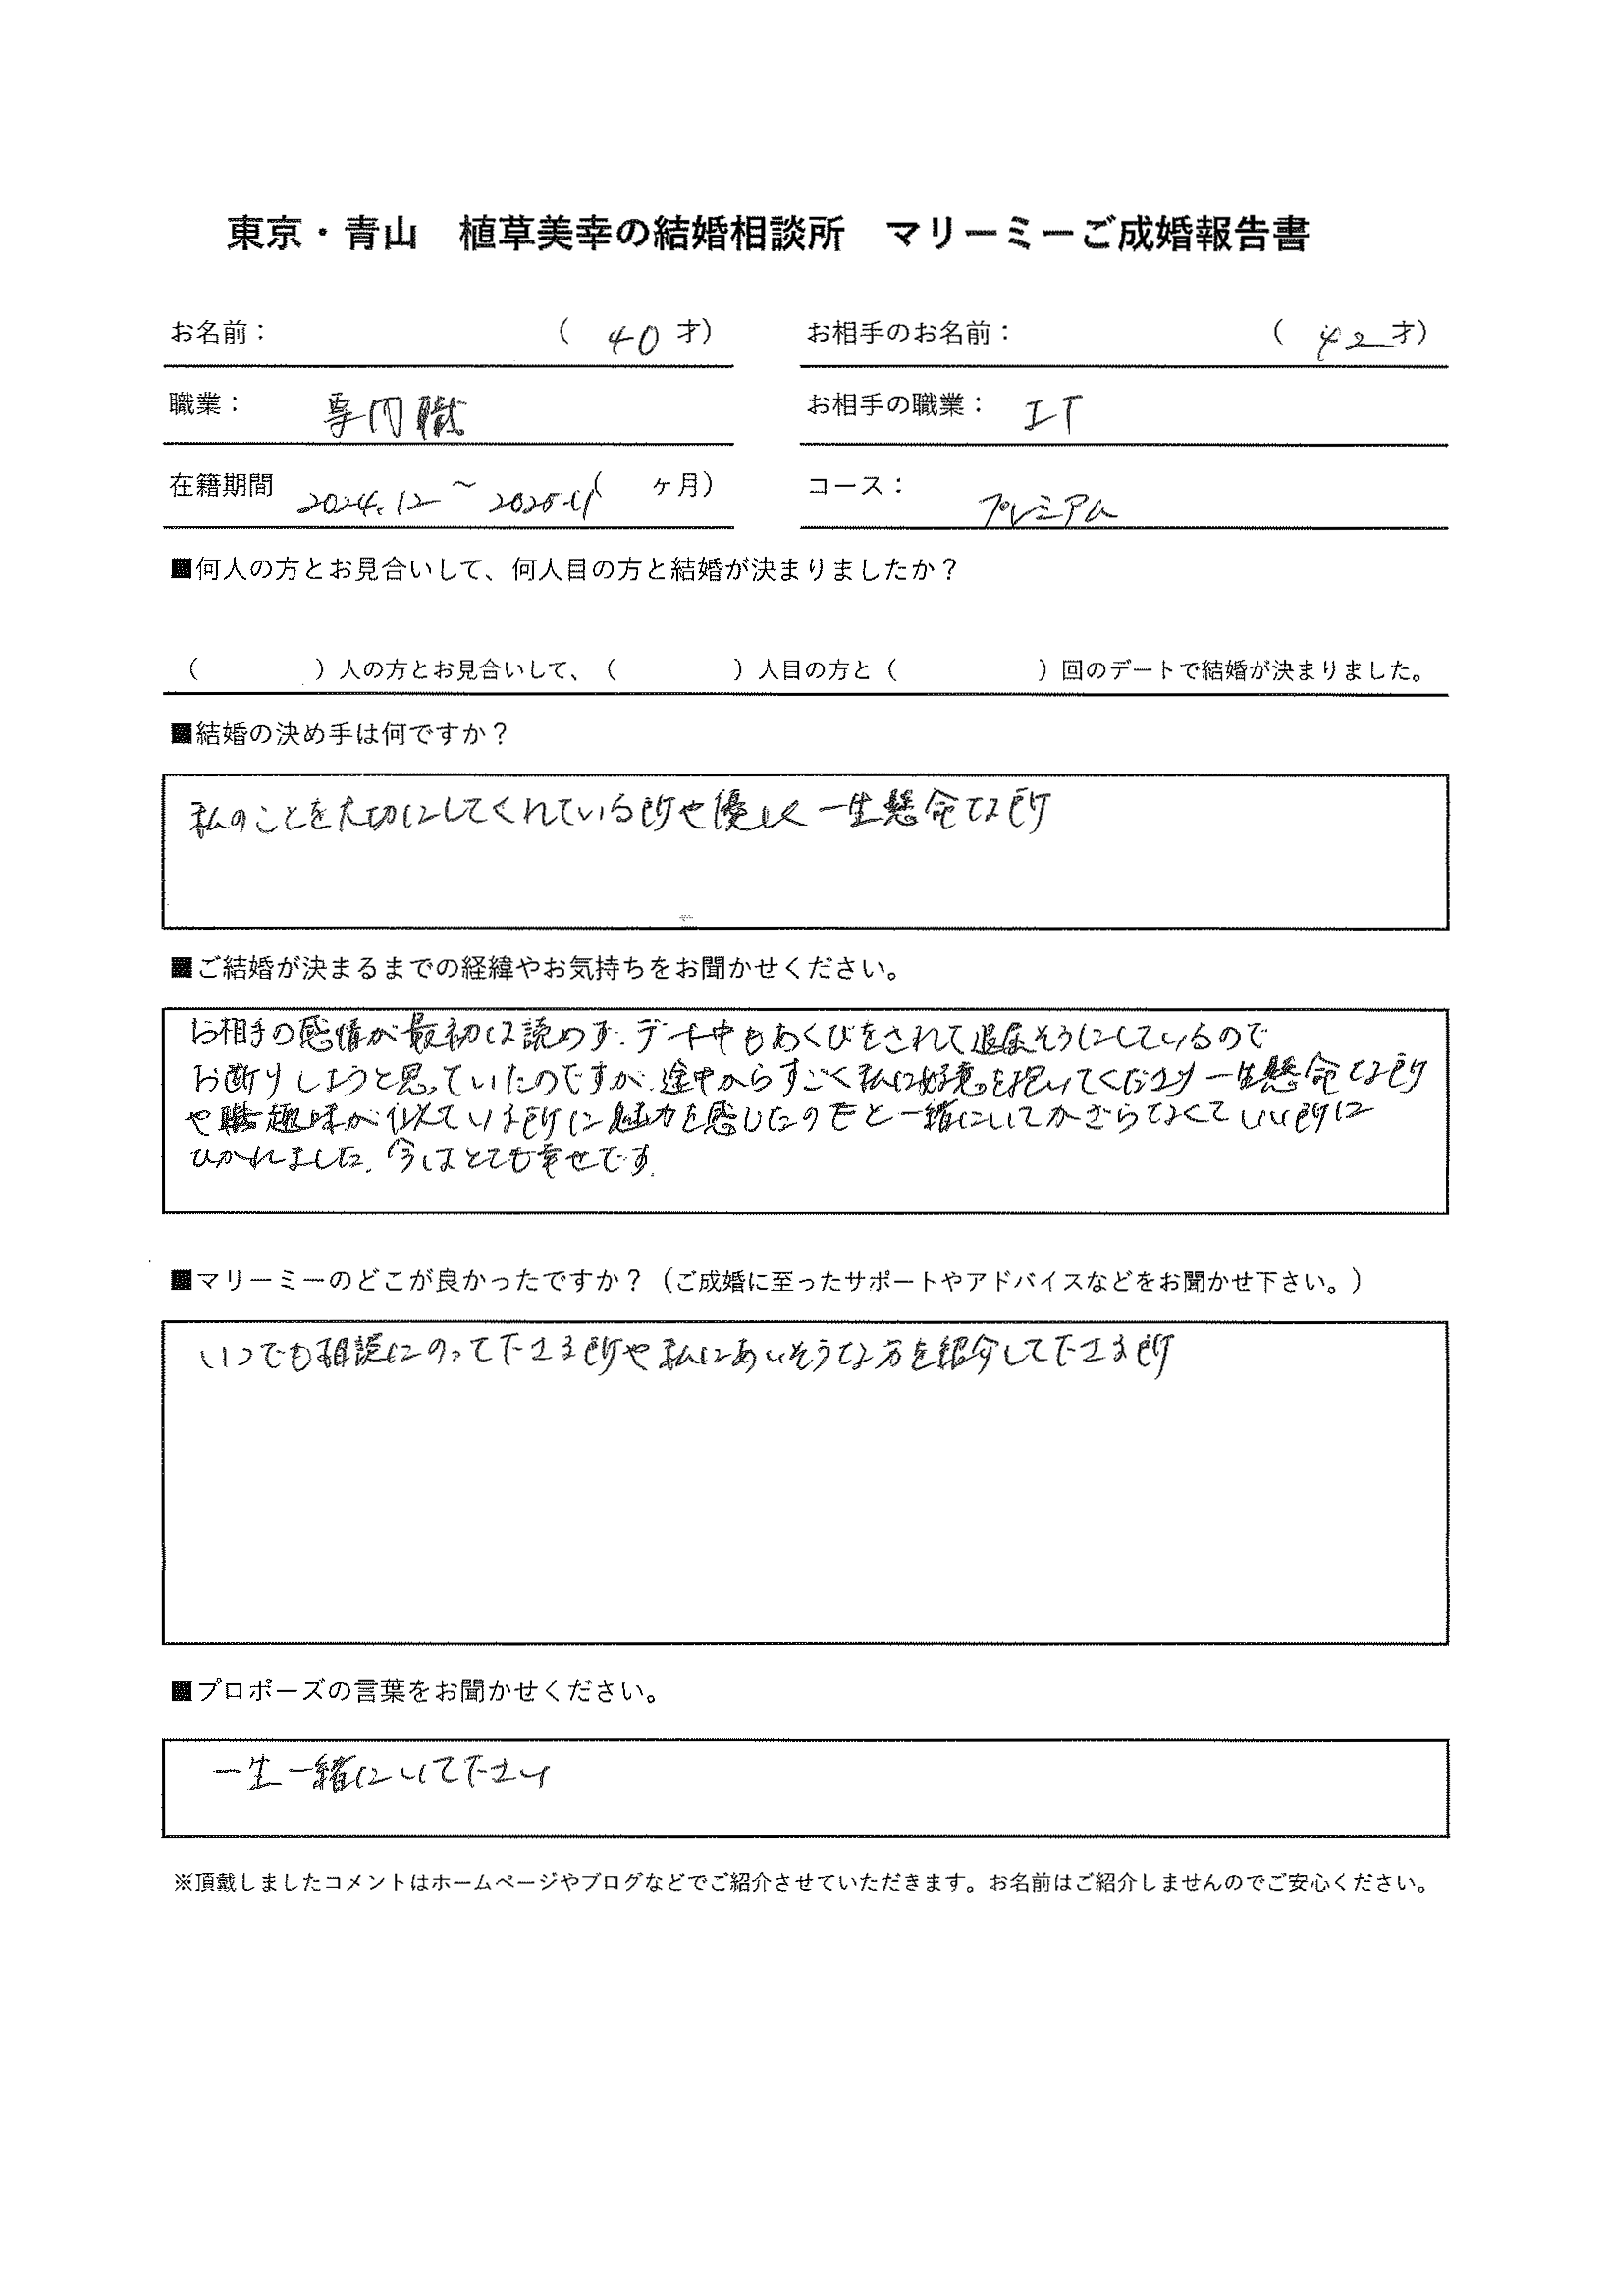 東京・青山　植草美幸の結婚相談所　マリーミーご成婚報告書
お名前：　（ 40 才）　お相手のお名前：　（ 42 才）
職業：　専門職　お相手の職業：　IT
在籍期間　2024.12 ～ 2025.11（　ヶ月）　コース：　プレミアム
■何人の方とお見合いして、何人目の方と結婚が決まりましたか？
（　　　）人の方とお見合いして、（　　　）人目の方と（　　　）回のデートで結婚が決まりました。
■結婚の決め手は何ですか？
私のことを大切にしてくれている所や優しく一生懸命な所
■ご結婚が決まるまでの経緯やお気持ちをお聞かせください。
お相手の感情が最初は読めず．デート中もあくびをされて退屈そうにしているので
お断りしようと思っていたのですが．途中からすごく私に好意を抱いてくださり一生懸命な所
や趣味が似ている所に魅力を感じたのもと一緒にいてかざらなくていい所に
ひかれました．今はとても幸せです．
■マリーミーのどこが良かったですか？（ご成婚に至ったサポートやアドバイスなどをお聞かせ下さい。）
いつでも相談にのって下さる所や私にあいそうな方を紹介して下さる所
■プロポーズの言葉をお聞かせください。
一生一緒にいて下さい
※頂戴しましたコメントはホームページやブログなどでご紹介させていただきます。お名前はご紹介しませんのでご安心ください。